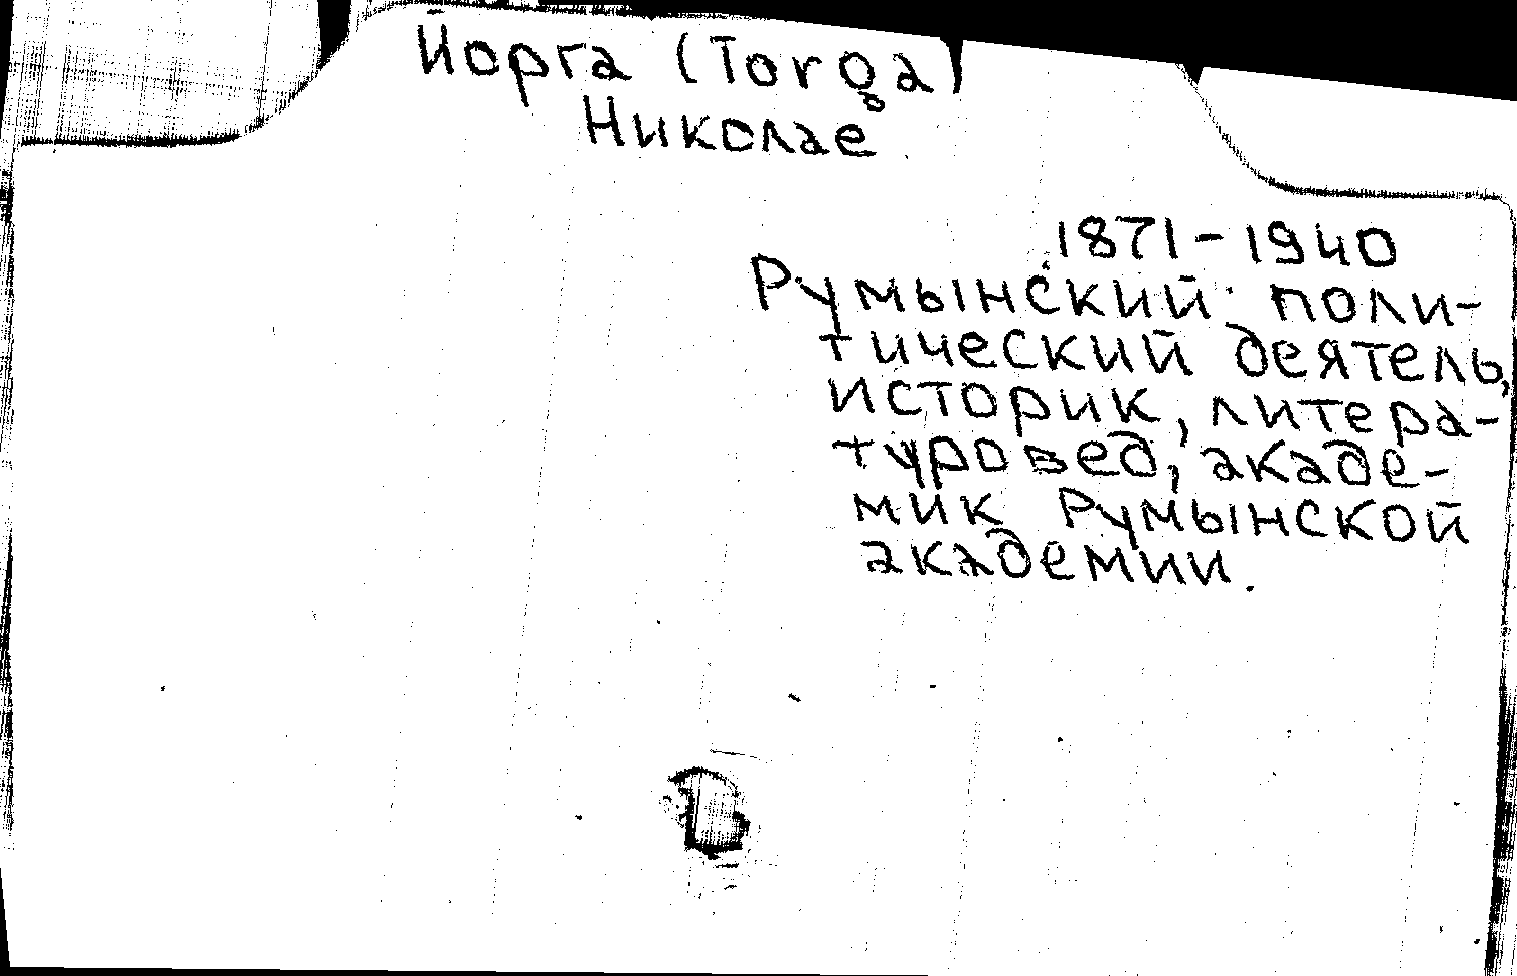 Йорга (Iorga)
Николае
1871-1940
Румынский поли-
тический деятель,
историк, литера-
туровед, акаде-
мик Румынской
академии.